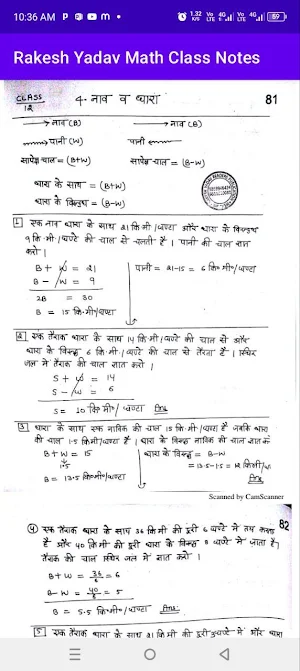 10:36 AM
1.32 K/S Vo LTE 4G Vo LTE 4G 59
Rakesh Yadav Math Class Notes
CLASS 12
4. नाव व धारा
81
→ नाव (B) → नाव (B)
→ पानी (W) पानी ←
सापेक्ष चाल = (B+W) सापेक्ष चाल = (B-W)
धारा के साथ = (B+W)
धारा के विरूद्ध = (B-W)
1 एक नाव धारा के साथ 21 कि.मी/घण्टा और धारा के विरूद्ध
9 कि.मी/घण्टे की चाल से चलती है । पानी की चाल ज्ञात
करो ।
B + W = 21 पानी = 21-15 = 6 कि०मी०/घण्टा
B - W = 9
2B = 30
B = 15 कि.मी/घण्टा
2 एक तैराक धारा के साथ 14 कि.मी/घण्टे की चाल से और
धारा के विरूद्ध 6 कि.मी./घण्टे की चाल से तैरता है । स्थिर
जल में तैराक की चाल ज्ञात करो ।
S + W = 14
S - W = 6
S = 10 कि०मी०/घण्टा Ans
3 धारा के साथ एक नाविक की चाल 15 कि.मी/घण्टा है जबकि धारा
की चाल 1.5 किमी/घण्टा है । धारा के विरूद्ध नाविक की चाल ज्ञात करो
B + W = 15 धारा के विरूद्ध = B-W
1.5 = 13.5-1.5 = 12 किमी/
B = 13.5 कि०मी०/घण्टा Ans
Scanned by CamScanner
82
(4) एक तैराक धारा के साथ 36 कि.मी की दूरी 6 घण्टे में तय करता
है और 40 कि.मी की दूरी धारा के विरूद्ध 8 घण्टे में जाता है।
तैराक की चाल स्थिर जल में ज्ञात करो ।
B + W = 36/6 = 6
B - W = 40/8 = 5
B = 5.5 कि०मी०/घण्टा Ans
5 एक तैराक धारा के साथ 21 कि.मी की दूरी 3 घण्टे में और धारा